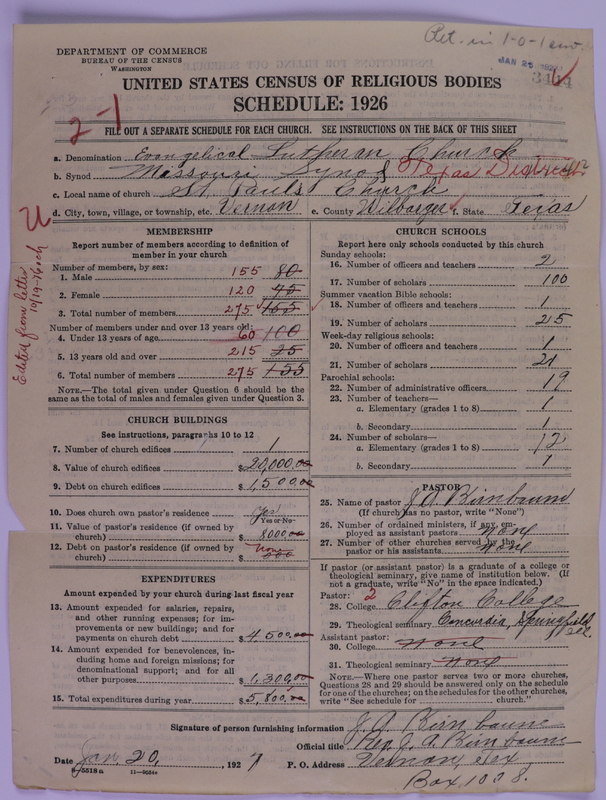 Ret. in 1-0-1 env.
DEPARTMENT OF COMMERCE
BUREAU OF THE CENSUS
WASHINGTON
JAN 25
UNITED STATES CENSUS OF RELIGIOUS BODIES
SCHEDULE: 1926
2-1
FILL OUT A SEPARATE SCHEDULE FOR EACH CHURCH. SEE INSTRUCTIONS ON THE BACK OF THIS SHEET
a. Denomination Evangelical Lutheran Church
b. Synod Missouri Synod Texas District
c. Local name of church St. Pauls Church
d. City, town, village, or township, etc. Vernon e. County Wilbarger f. State Texas
Edited from letter
10/19-Koch
MEMBERSHIP
Report number of members according to definition of
member in your church
Number of members, by sex:
1. Male 155 80
2. Female 120 45
3. Total number of members 275 155
Number of members under and over 13 years old:
4. Under 13 years of age 60 100
5. 13 years old and over 215 25
6. Total number of members 275 155
NOTE.—The total given under Question 6 should be
the same as the total of males and females given under Question 3.
CHURCH BUILDINGS
See instructions, paragraphs 10 to 12
7. Number of church edifices 1
8. Value of church edifices $20,000.00
9. Debt on church edifices $1,500.00
10. Does church own pastor's residence Yes
Yes or No
11. Value of pastor's residence (if owned by
church) $8000.00
12. Debt on pastor's residence (if owned by
church) $ None
EXPENDITURES
Amount expended by your church during last fiscal year
13. Amount expended for salaries, repairs,
and other running expenses; for im-
provements or new buildings; and for
payments on church debt $4,500.00
14. Amount expended for benevolences, in-
cluding home and foreign missions; for
denominational support; and for all
other purposes $1,300.00
15. Total expenditures during year $5,800.00
CHURCH SCHOOLS
Report here only schools conducted by this church
Sunday schools:
16. Number of officers and teachers 2
17. Number of scholars 100
Summer vacation Bible schools:
18. Number of officers and teachers 1
19. Number of scholars 215
Week-day religious schools:
20. Number of officers and teachers 1
21. Number of scholars 21
Parochial schools:
22. Number of administrative officers 19
23. Number of teachers—
a. Elementary (grades 1 to 8) 1
b. Secondary 1
24. Number of scholars—
a. Elementary (grades 1 to 8) 12
b. Secondary 1
PASTOR
25. Name of pastor J. A. Birnbaum
(If church has no pastor, write "None")
26. Number of ordained ministers, if any, em-
ployed as assistant pastors None
27. Number of other churches served by the
pastor or his assistants None
If pastor (or assistant pastor) is a graduate of a college or
theological seminary, give name of institution below. (If
not a graduate, write "No" in the space indicated.)
Pastor: 2
28. College Clifton College
29. Theological seminary Concordia, Springfield Ill.
Assistant pastor:
30. College None
31. Theological seminary None
NOTE.—Where one pastor serves two or more churches,
Questions 28 and 29 should be answered only on the schedule
for one of the churches; on the schedules for the other churches,
write "See schedule for church."
Signature of person furnishing information J. A. Birnbaum
Official title Rev. J. A. Birnbaum
Date Jan. 20, 1927 P. O. Address Vernon, Tex
8—5518a 11—9024a
Box 1028.